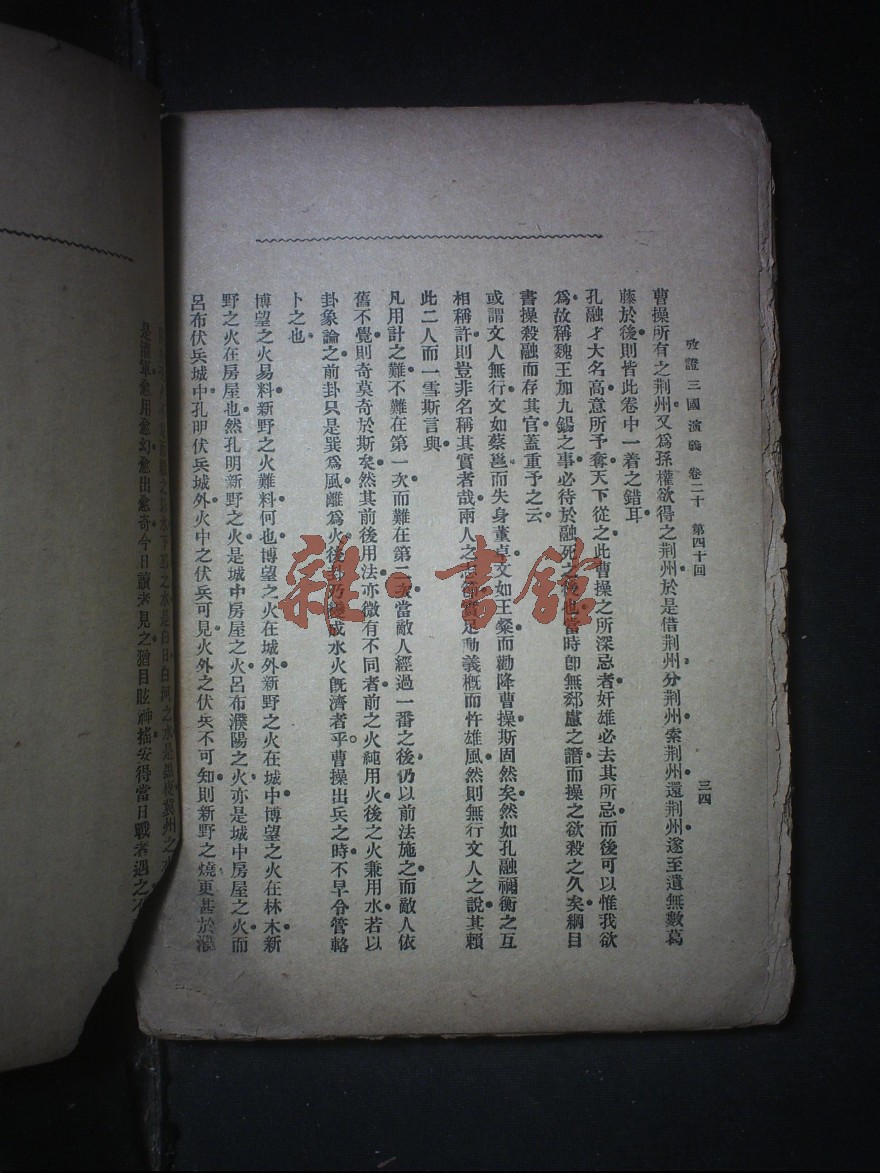 攷證三國演義 卷二十 第四十回 三四
曹操所有之荆州又爲孫權欲得之荆州於是借荆州分荆州索荆州還荆州遂至遺無數葛
藤於後則皆此卷中一着之錯耳
孔融才大名高意所予奪天下從之此曹操之所深忌者奸雄必去其所忌而後可以惟我欲
爲故稱魏王加九錫之事必待於融死之後也當時卽無郄慮之譖而操之欲殺之久矣綱目
書操殺融而存其官蓋重予之云
或謂文人無行文如蔡邕而失身董卓文如王粲而勸降曹操斯固然矣然如孔融禰衡之互
相稱許則豈非名稱其實者哉兩人之志節質足動義概而忤雄風然則無行文人之說其賴
此二人而一雪斯言與
凡用計之難不難在第一次而難在第二次當敵人經過一番之後仍以前法施之而敵人依
舊不覺則奇莫奇於斯矣然其前後用法亦微有不同者前之火純用火後之火兼用水若以
卦象論之前卦只是巽爲風離爲火後卦乃變成水火旣濟者乎曹操出兵之時不早令管輅
卜之也
博望之火易料新野之火難料何也博望之火在城外新野之火在城中博望之火在林木新
野之火在房屋也然孔明新野之火是城中房屋之火呂布濮陽之火亦是城中房屋之火而
呂布伏兵城中孔明伏兵城外火中之伏兵可見火外之伏兵不可知則新野之燒更甚於濮
之水下邳之水是白日白河之水是黑夜冀州之水
是前軍愈用愈幻愈出愈奇今日讀者見之猶目眩神搖安得當日戰者遇之不
雜·書館